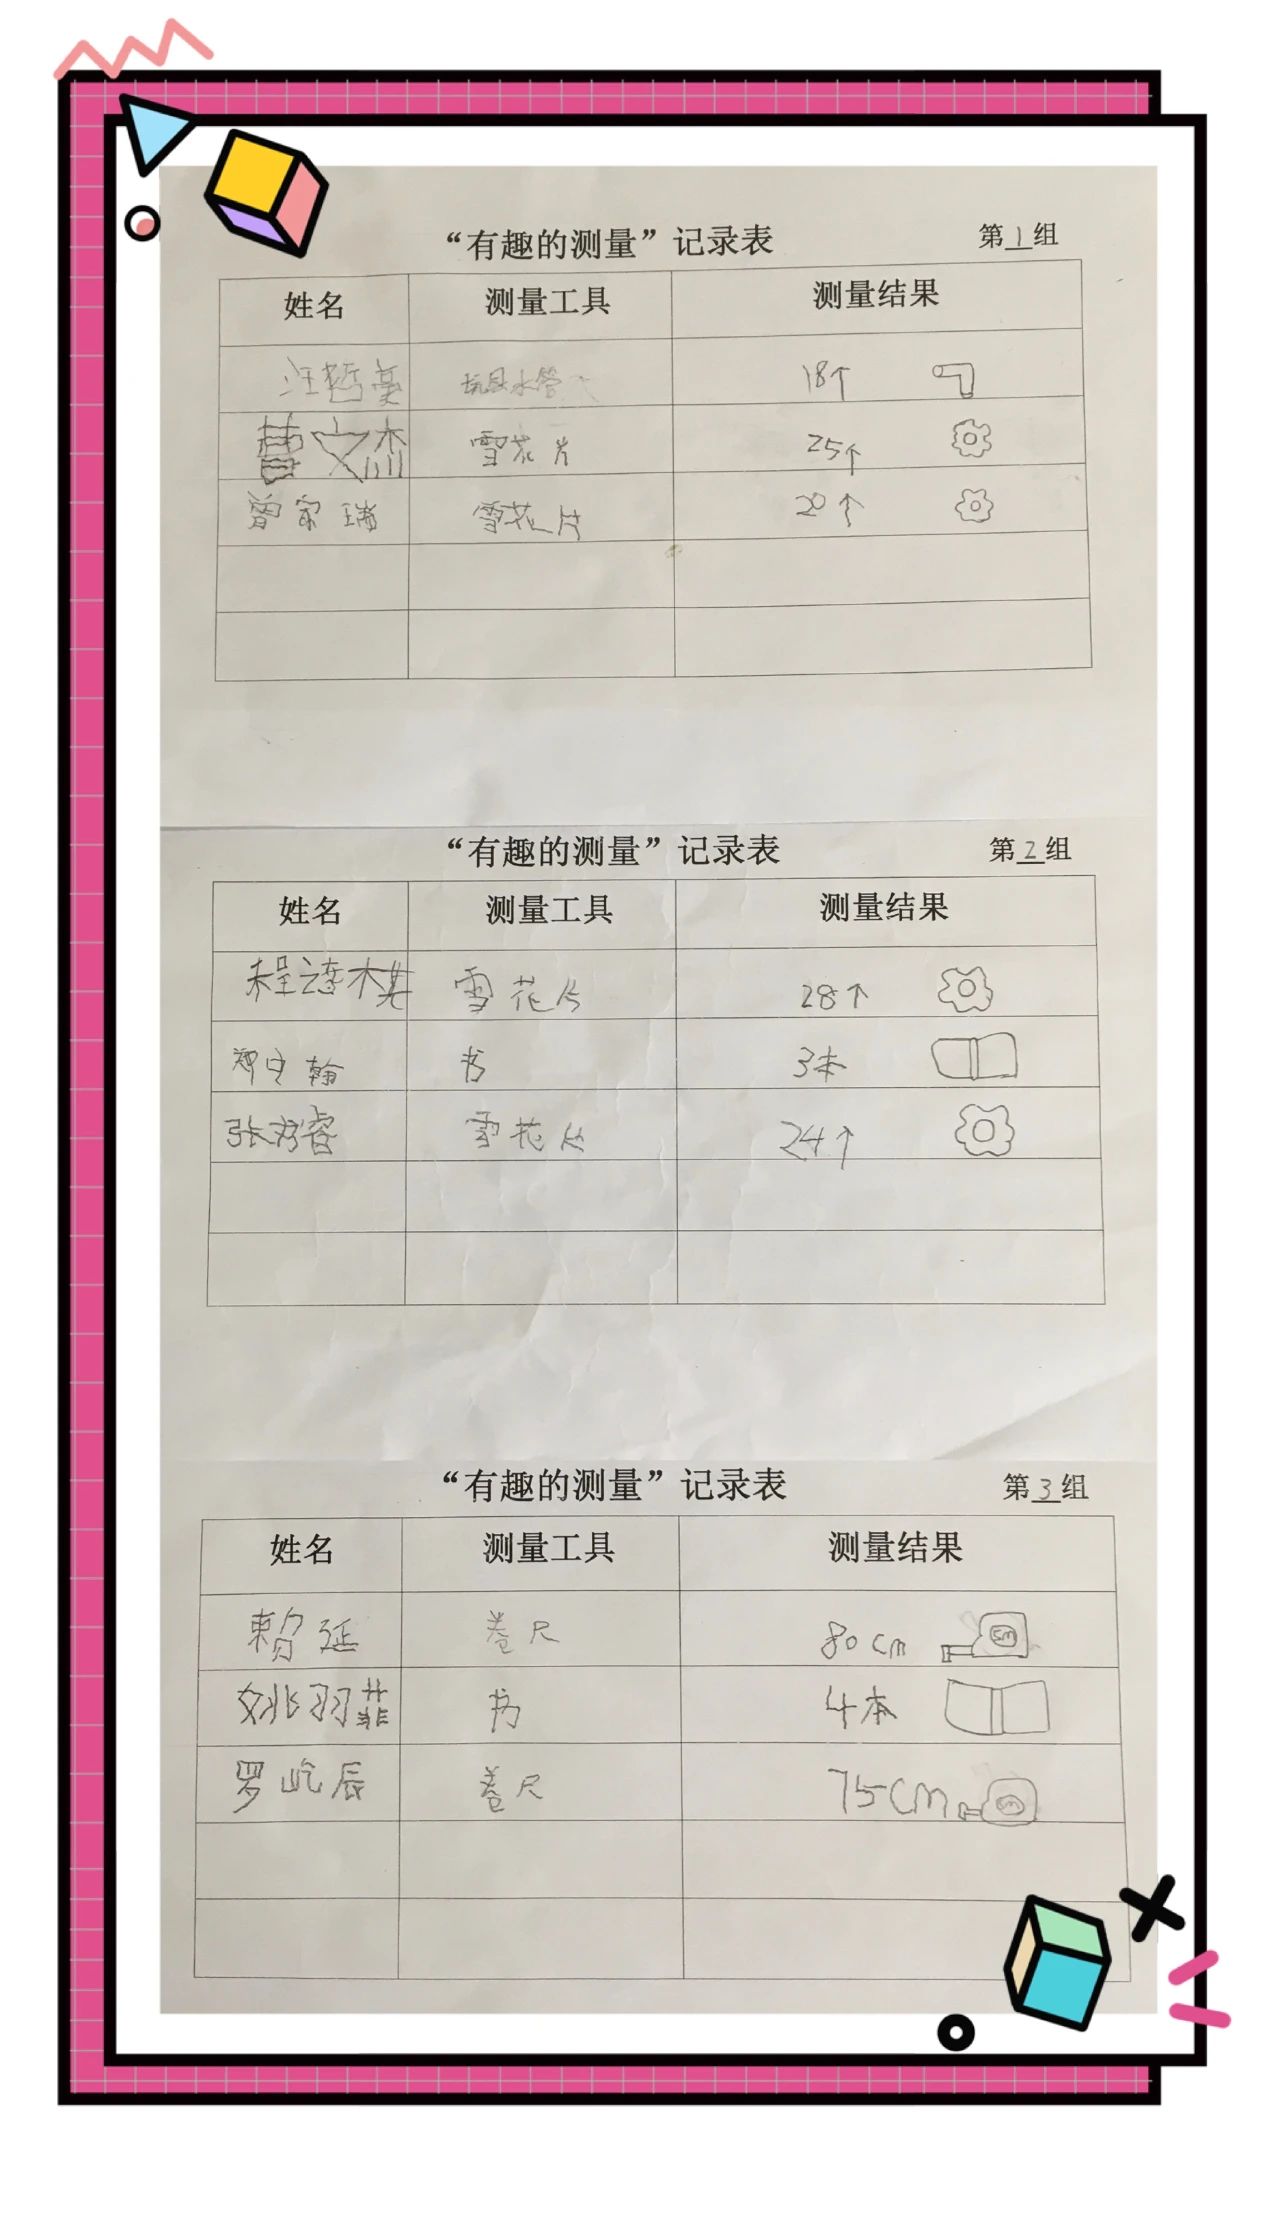 “有趣的测量”记录表 第1组
姓名 测量工具 测量结果
汪哲 玩具水管 18个
曹文杰 雪花片 25个
曾家瑞 雪花片 20个
“有趣的测量”记录表 第2组
姓名 测量工具 测量结果
程 雪花片 28个
郑 翰 书 3本
张 睿 雪花片 24个
“有趣的测量”记录表 第3组
姓名 测量工具 测量结果
赖延 卷尺 80cm 5m
姚羽菲 书 4本
罗屹辰 卷尺 75cm 5m